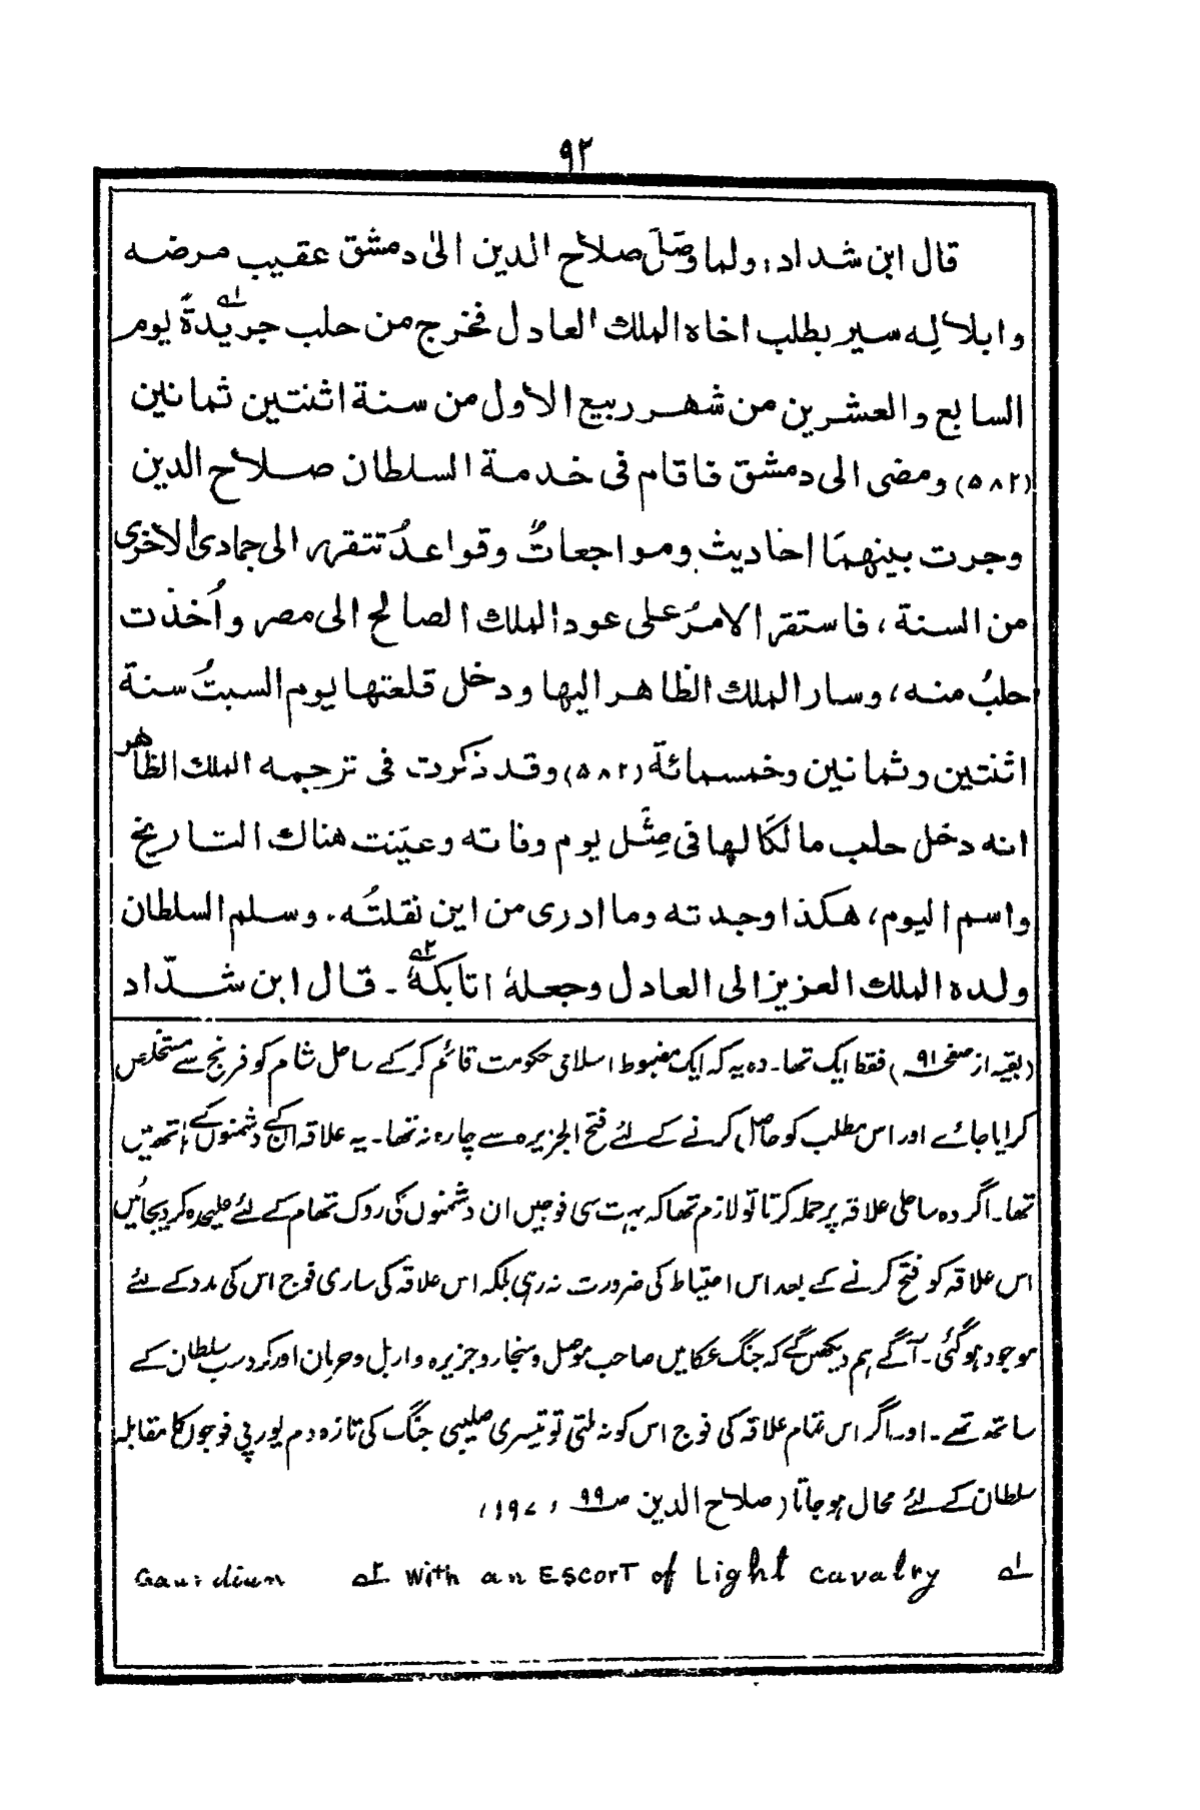 ۹۲
قال ابن شداد، ولما وصَلَ صلاح الدین الیٰ دمشق عقیب مرضه
وابلاله سیر یطلب اخاه الملك العادل فخرج من حلب جریدةً لہ یوم
السابع والعشرین من شهر ربیع الاول من سنة اثنتین ثمانین
(۵۸۲) ومضی الی دمشق فاقام فی خدمة السلطان صلاح الدین
وجرت بینهما احادیث ومواجعاتٌ وقواعدُ تتقرر الی جمادی الاخری
من السنة، فاستقر الامرُ علی عود الملك الصالح الی مصر واُخذت
حلبُ منه، وسار الملك الظاهر الیها ودخل قلعتها یوم السبتُ سنة
اثنتین وثمانین وخمسمائة (۵۸۲) وقد ذکرت فی ترجمه الملك الظاهر
انه دخل حلب مالکًا لها فی مِثْل یوم وفاته وعیّنت هناك التاریخ
واسم الیوم، هکذا وجدته وما ادری من این نقلتُه. وسلم السلطان
ولده الملك العزیز الی العادل وجعلهٗ اتابکهٗ ۲ہ ۔ قال ابن شدّاد
(بقیہ از صفحہ ۹۱) فقط ایک تھا۔ وہ یہ کہ ایک مضبوط اسلامی حکومت قائم کر کے ساحل شام کو فرنج سے مستخلص
کرایا جائے اور اس مطلب کو حاصل کرنے کے لئے فتح الجزیرہ سے چارہ نہ تھا۔ یہ علاقہ ان کے دشمنوں کے ہاتھ میں
تھا۔ اگر وہ ساحلی علاقہ پر حملہ کرتا تو لازم تھا کہ بہت سی فوجیں ان دشمنوں کی روک تھام کے لئے علیحدہ کر دیجائیں
اس علاقہ کو فتح کرنے کے بعد اس احتیاط کی ضرورت نہ رہی بلکہ اس علاقہ کی ساری فوج اس کی مدد کے لئے
موجود ہو گئی۔ آگے ہم دیکھیں گے کہ جنگ عکا میں صاحب موصل و سنجار و جزیرہ و اربل و حران اور کرد سب سلطان کے
ساتھ تھے۔ اور اگر اس تمام علاقہ کی فوج اس کو نہ ملتی تو تیسری صلیبی جنگ کی تازہ دم یورپی فوجوں کا مقابلہ
سلطان کے لئے محال ہو جاتا (صلاح الدین صـ ۹۹ ، ۱۹۷)
۱ہ With an ESCORT of Light cavalry ۲ہ Gaurdian